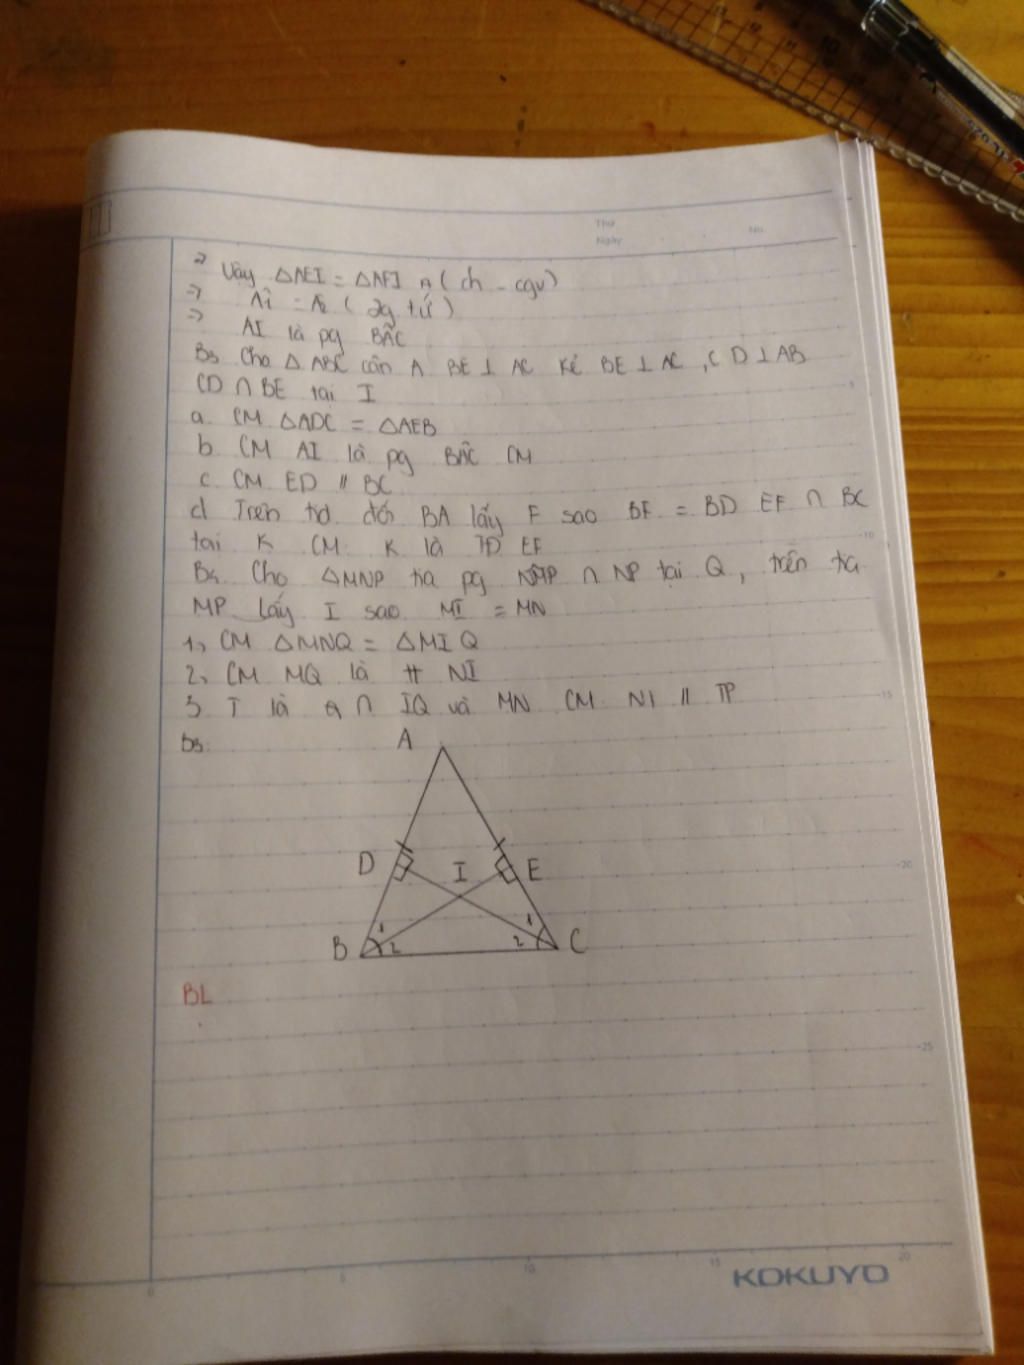 Thứ
Ngày
No.
=> Vậy △AEI = △AFI (ch - cgv)
=> Â1 = Â2 (2g tứ)
=> AI là pg BÂC
B3 Cho △ABC cân A BE ⊥ AC Kẻ BE ⊥ AC, CD ⊥ AB
CD ∩ BE tại I
a. CM △ADC = △AEB
b CM AI là pg BÂC CM
c. CM ED // BC
d Trên tia đối BA lấy F sao BF = BD EF ∩ BC
tai K CM K là TĐ EF
B4 Cho △MNP tia pg NMP ∩ NP tại Q, trên tia
MP lấy I sao MI = MN
1, CM △MNQ = △MIQ
2, CM MQ là tt NI
3 T là g ∩ IQ và MN CM NI // TP
b3.
A
D I E
1 1
B 2 2 C
BL
5
10
15
20
25
0 5 10 15 20
KOKUYO